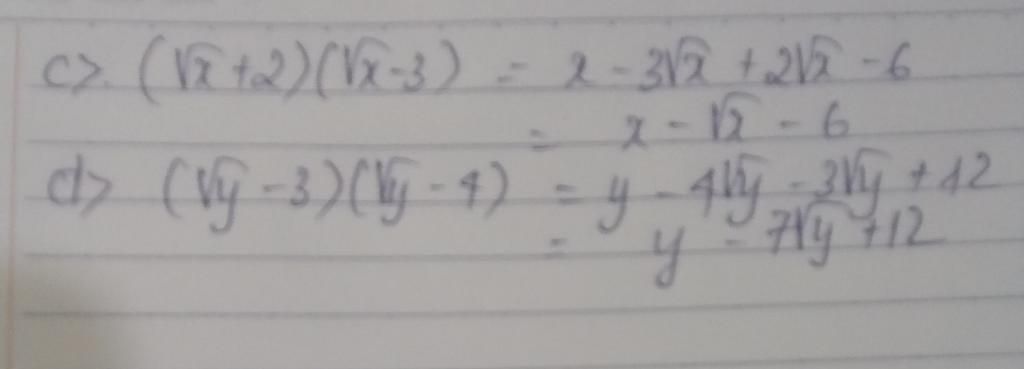 c>. (√x+2)(√x-3) = x - 3√x + 2√x - 6
= x - √x - 6
d> (√y - 3)(√y - 4) = y - 4√y - 3√y + 12
= y - 7√y + 12